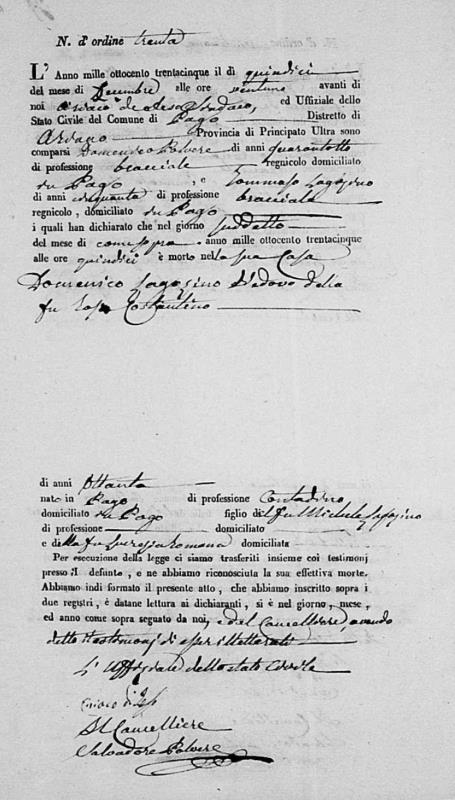 N. d'ordine trenta
L' Anno mille ottocento trentacinque il dì quindici
del mese di Decembre alle ore ventuno avanti di
noi Ciriaco de Sindaco, ed Uffiziale dello
Stato Civile del Comune di Pago Distretto di
Ariano Provincia di Principato Ultra sono
comparsi Domenico Polvere di anni quarantotto
di professione bracciale regnicolo domiciliato
in Pago, e Tommaso
di anni cinquanta di professione bracciale
regnicolo, domiciliato in Pago
i quali han dichiarato che nel giorno suddetto
del mese di come sopra anno mille ottocento trentacinque
alle ore quindici è morto nella sua Casa
Domenico Vedovo della
fu Rosa Costantino
di anni Ottanta
nato in Pago di professione Contadino
domiciliato in Pago figlio del fu Michele
di professione domiciliato
e della fu Romano domiciliata
Per esecuzione della legge ci siamo trasferiti insieme coi testimonj
presso il defunto, e ne abbiamo riconosciuta la sua effettiva morte.
Abbiamo indi formato il presente atto, che abbiamo inscritto sopra i
due registri, è datane lettura ai dichiaranti, si è nel giorno, mese,
ed anno come sopra segnato da noi, e del Cancelliere, avendo
detto i testimonj di esser illetterati
L'Uffiziale dello stato Civile
Ciriaco de
Il Cancelliere
Salvadore Polvere